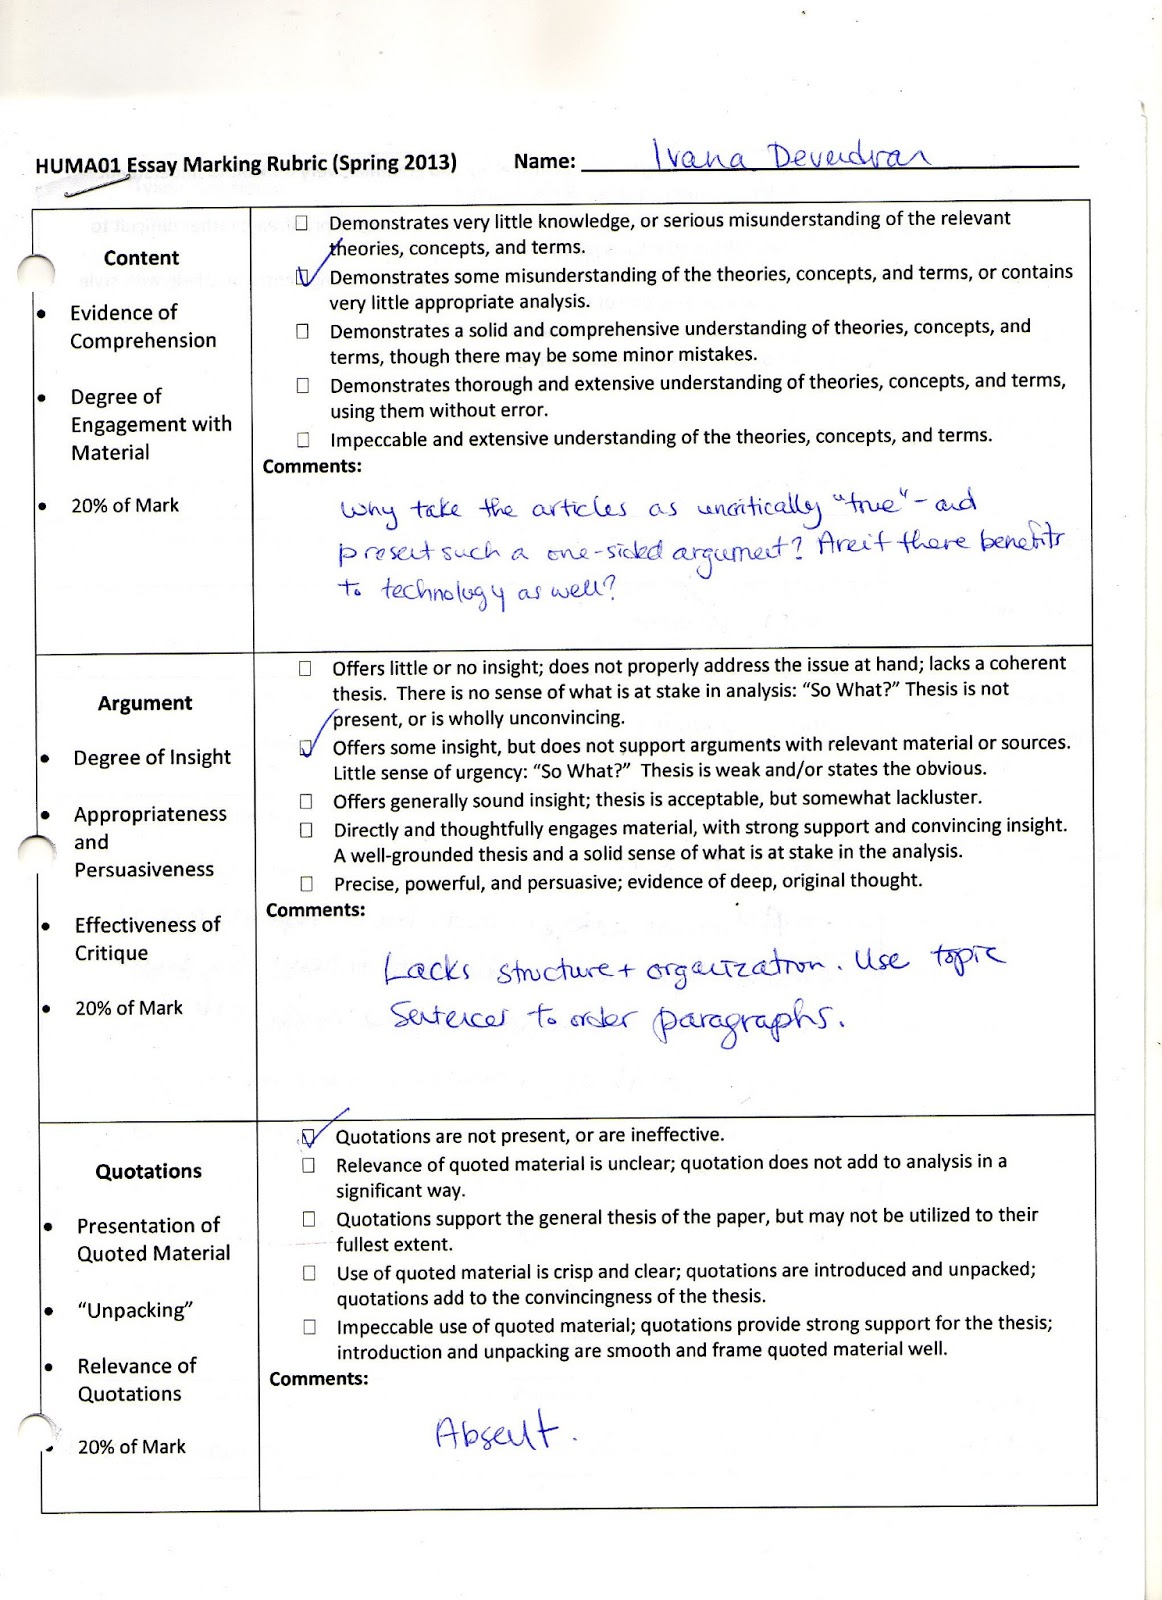 HUMA01 Essay Marking Rubric (Spring 2013) Name: Ivana Devendran
Content
• Evidence of
Comprehension
• Degree of
Engagement with
Material
• 20% of Mark
☐ Demonstrates very little knowledge, or serious misunderstanding of the relevant
theories, concepts, and terms.
☑ Demonstrates some misunderstanding of the theories, concepts, and terms, or contains
very little appropriate analysis.
☐ Demonstrates a solid and comprehensive understanding of theories, concepts, and
terms, though there may be some minor mistakes.
☐ Demonstrates thorough and extensive understanding of theories, concepts, and terms,
using them without error.
☐ Impeccable and extensive understanding of the theories, concepts, and terms.
Comments:
Why take the articles as uncritically "true" - and
present such a one-sided argument? Aren't there benefits
to technology as well?
Argument
• Degree of Insight
• Appropriateness
and
Persuasiveness
• Effectiveness of
Critique
• 20% of Mark
☐ Offers little or no insight; does not properly address the issue at hand; lacks a coherent
thesis. There is no sense of what is at stake in analysis: “So What?” Thesis is not
present, or is wholly unconvincing.
☑ Offers some insight, but does not support arguments with relevant material or sources.
Little sense of urgency: “So What?” Thesis is weak and/or states the obvious.
☐ Offers generally sound insight; thesis is acceptable, but somewhat lackluster.
☐ Directly and thoughtfully engages material, with strong support and convincing insight.
A well-grounded thesis and a solid sense of what is at stake in the analysis.
☐ Precise, powerful, and persuasive; evidence of deep, original thought.
Comments:
Lacks structure + organization. Use topic
Sentences to order paragraphs.
Quotations
• Presentation of
Quoted Material
• “Unpacking”
• Relevance of
Quotations
• 20% of Mark
☑ Quotations are not present, or are ineffective.
☐ Relevance of quoted material is unclear; quotation does not add to analysis in a
significant way.
☐ Quotations support the general thesis of the paper, but may not be utilized to their
fullest extent.
☐ Use of quoted material is crisp and clear; quotations are introduced and unpacked;
quotations add to the convincingness of the thesis.
☐ Impeccable use of quoted material; quotations provide strong support for the thesis;
introduction and unpacking are smooth and frame quoted material well.
Comments:
Absent.